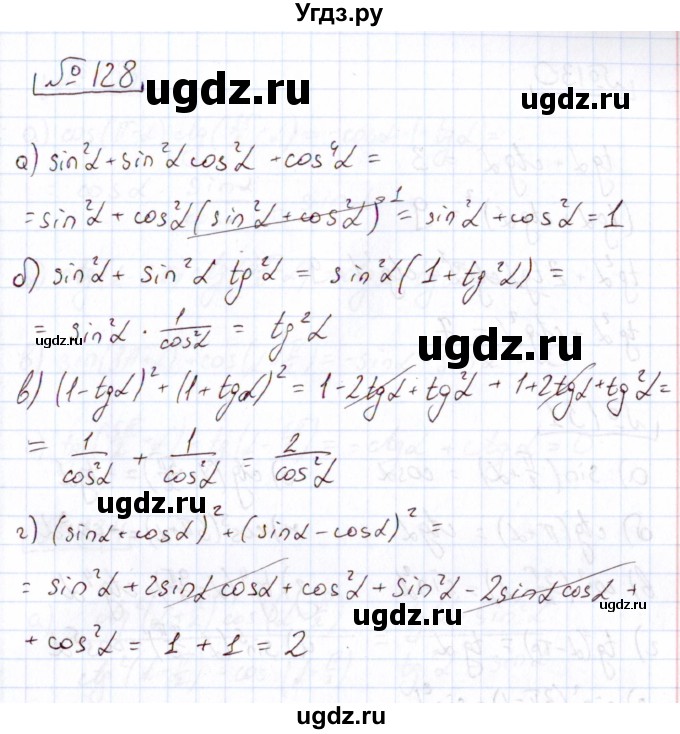 Угдз.ру
№ 128
ugdz.ru
ugdz.ru
а) sin²α + sin²α cos²α + cos⁴α =
= sin²α + cos²α (sin²α + cos²α)¹ = sin²α + cos²α = 1
ugdz.ru
б) sin²α + sin²α tg²α = sin²α (1 + tg²α) =
= sin²α · 1/cos²α = tg²α
ugdz.ru
ugdz.ru
в) (1 - tgα)² + (1 + tgα)² = 1 - 2tgα + tg²α + 1 + 2tgα + tg²α =
= 1/cos²α + 1/cos²α = 2/cos²α
ugdz.ru
г) (sinα + cosα)² + (sinα - cosα)² =
= sin²α + 2sinα cosα + cos²α + sin²α - 2sinα cosα +
ugdz.ru
ugdz.ru
+ cos²α = 1 + 1 = 2
ugdz.ru